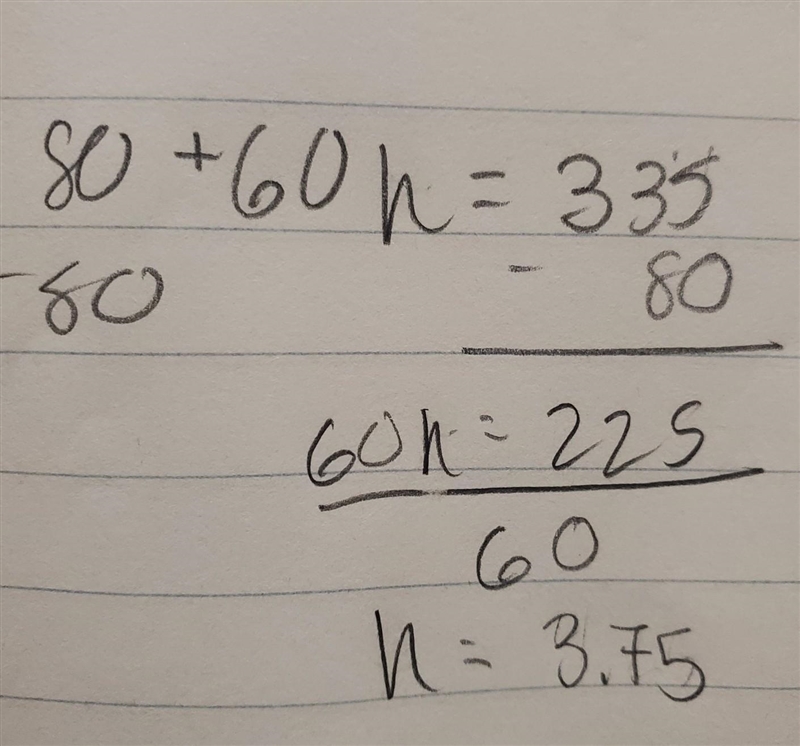 80 + 60h = 335
-80 - 80
60h = 225
60
h = 3.75